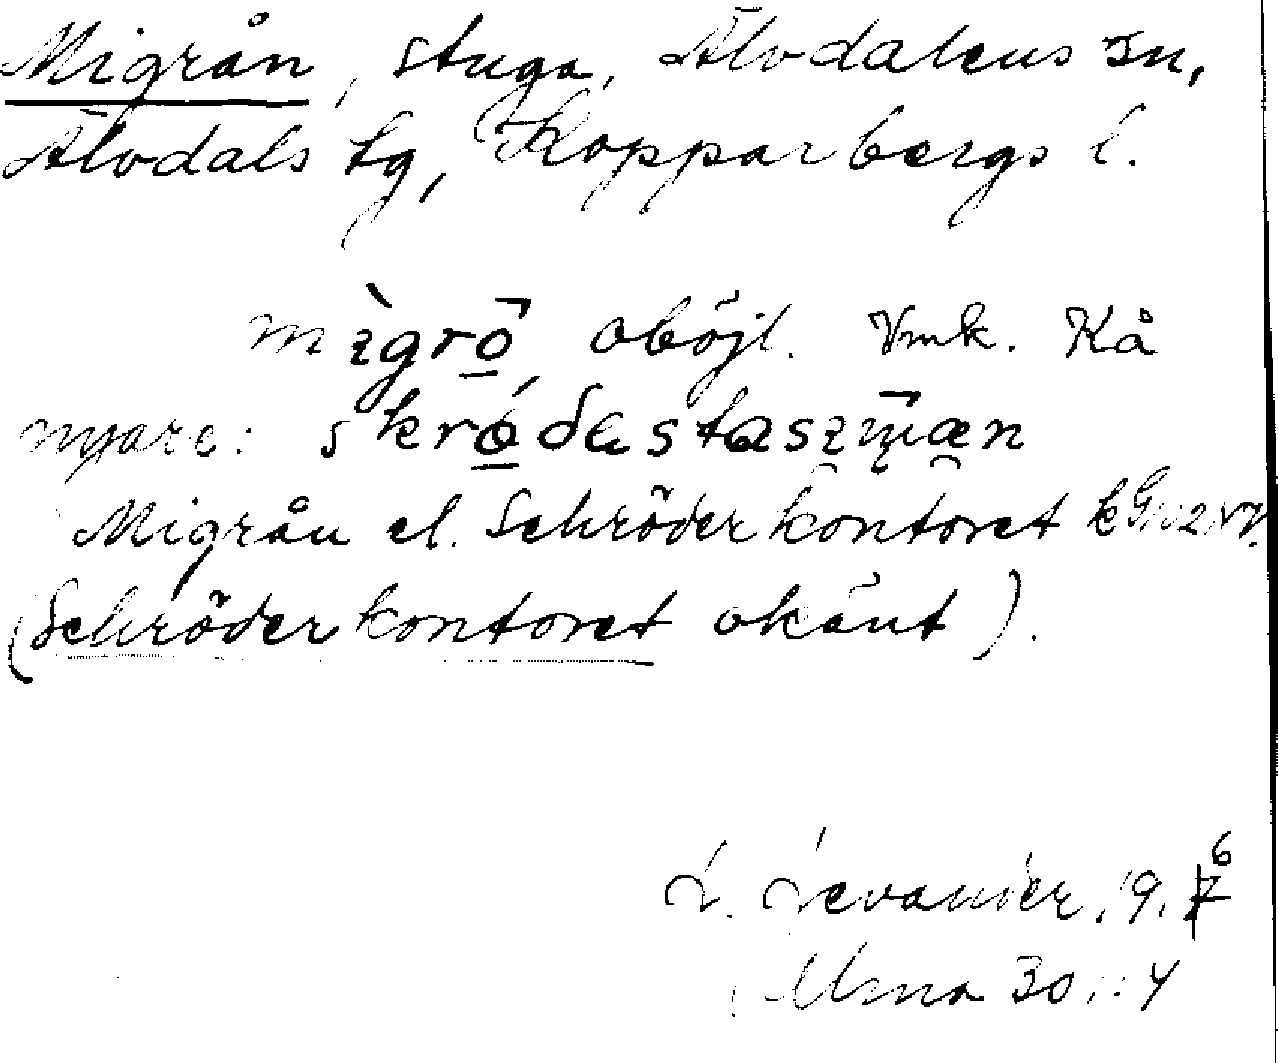 Migrån, stuga, Älvdalens sn,
Älvdals tg, Kopparbergs l.
mìgrō̲, oböjl. Vmk. Kå
nyare:
Migrån el. Schröderkontoret
(Schröderkontoret okänt).
L. Levander, 19.
30 : 4